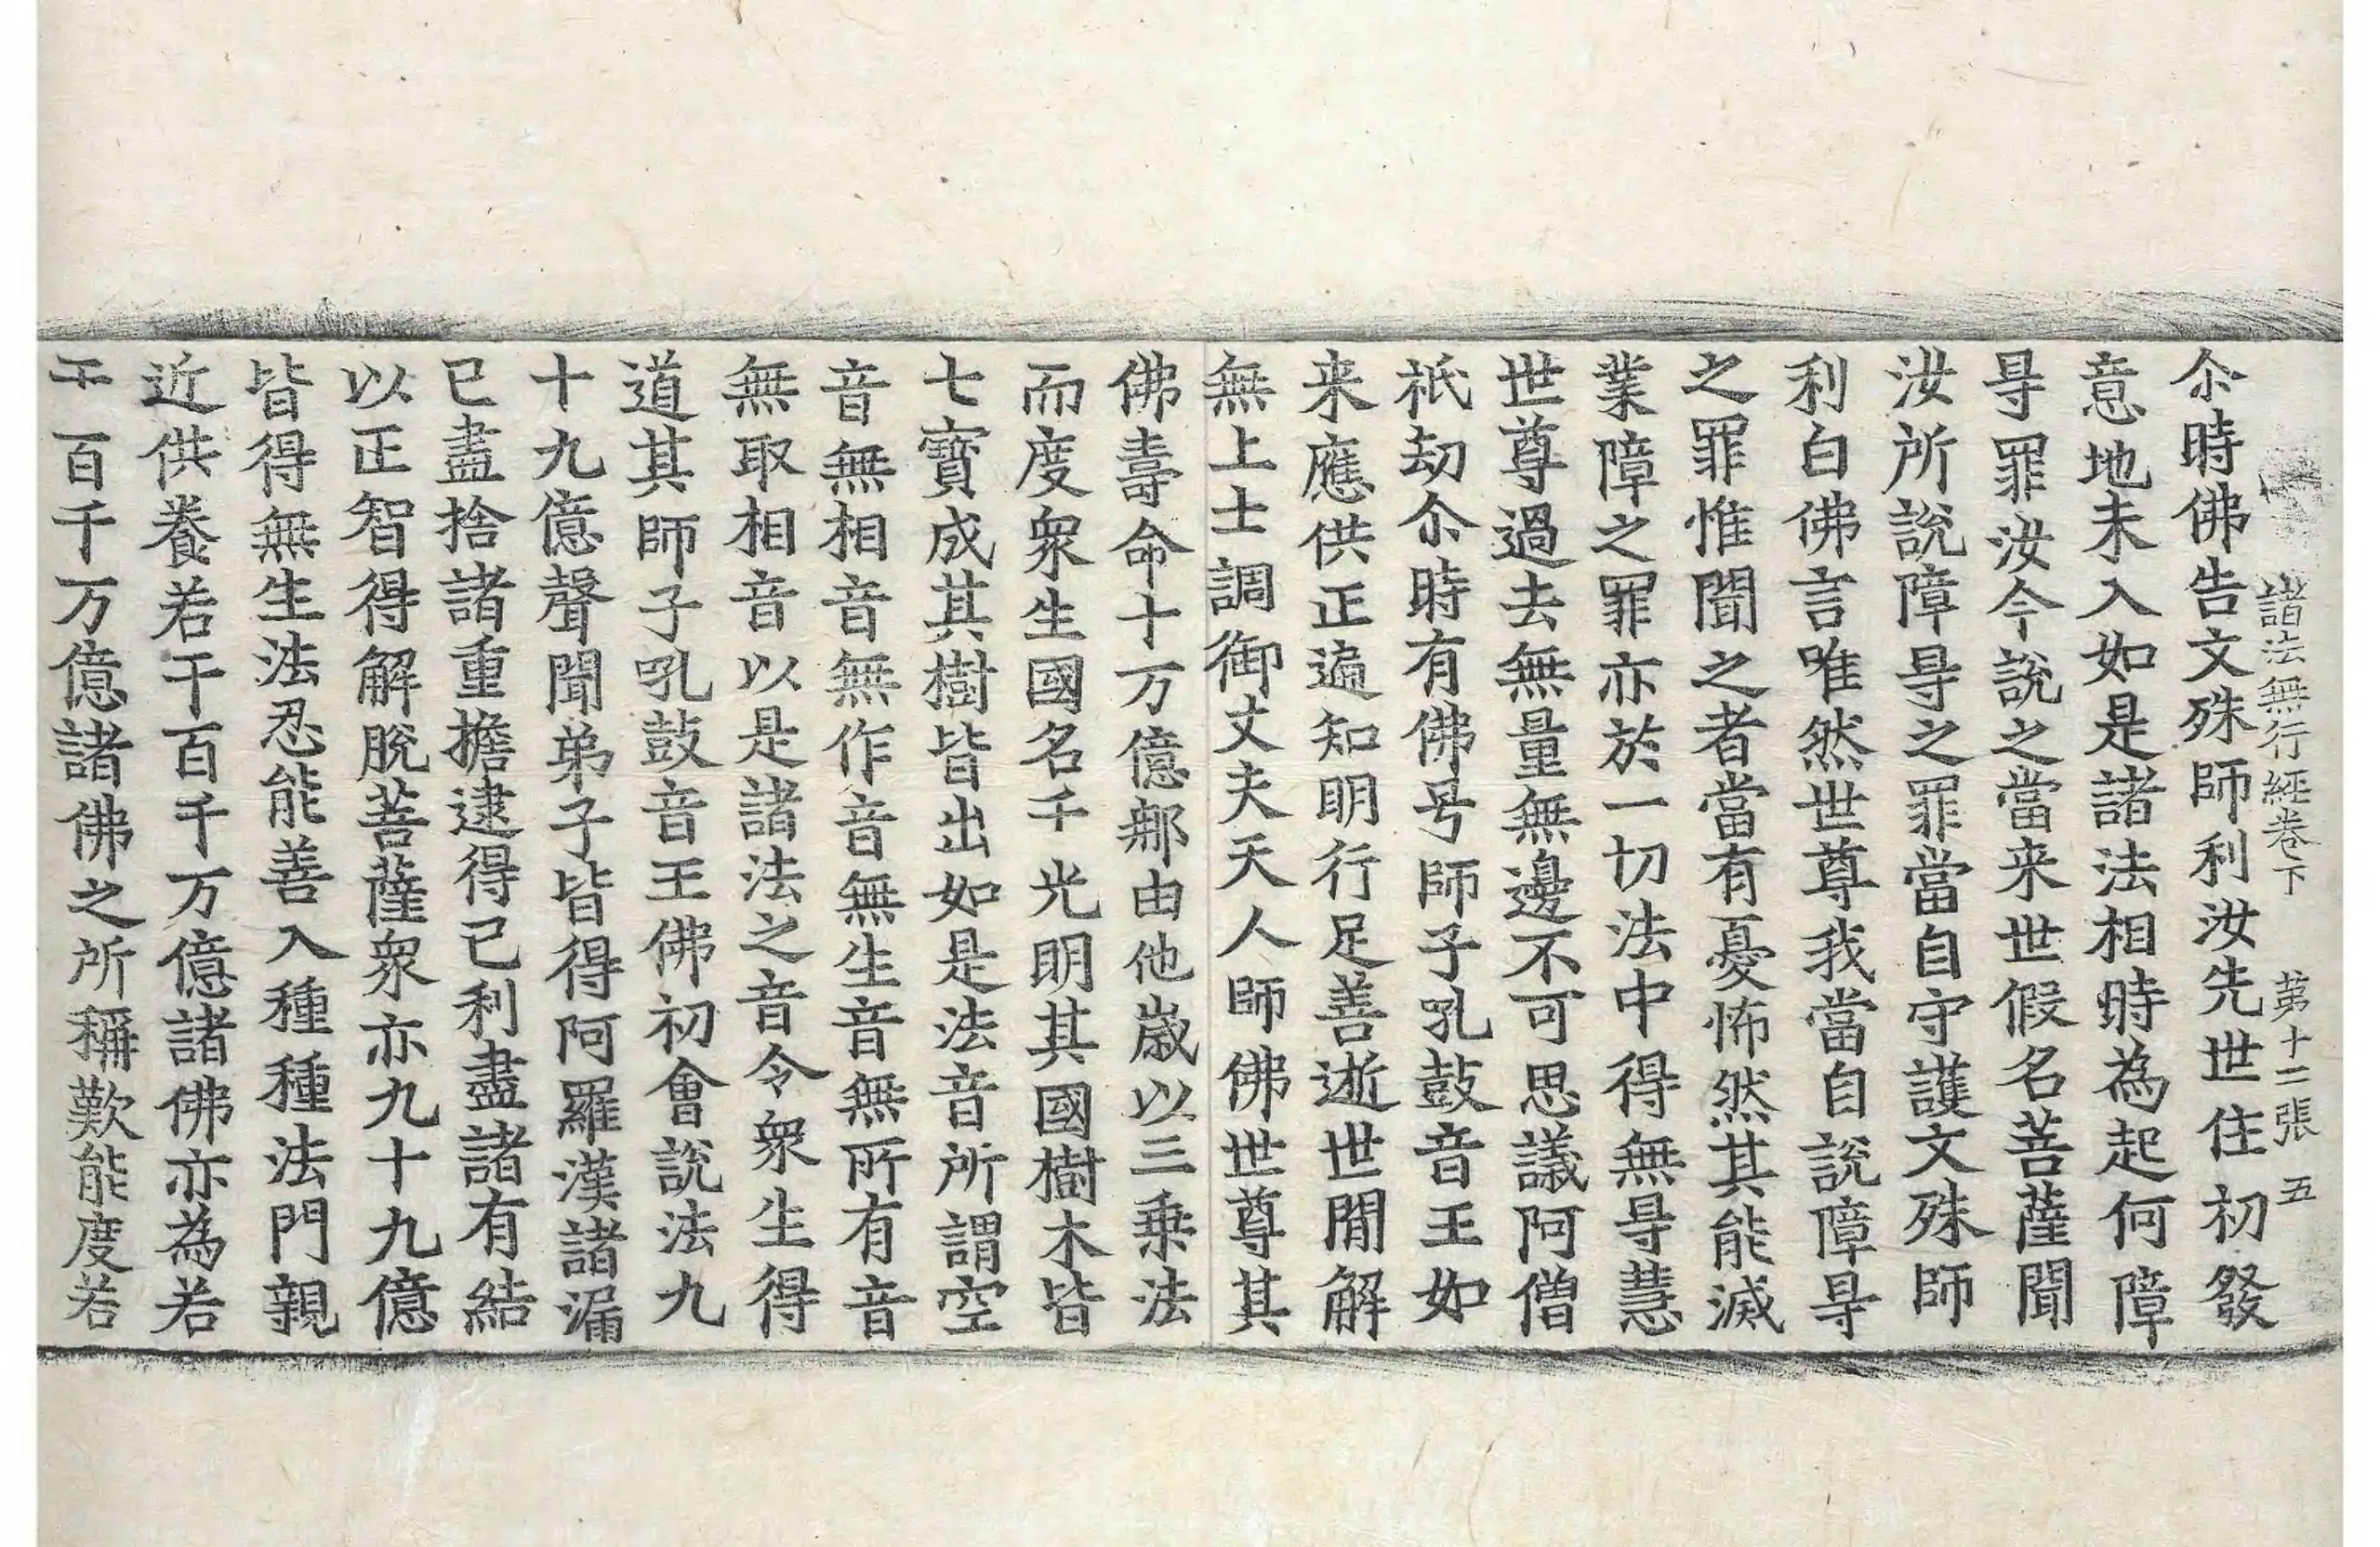 諸法無行經卷下 第十二張 五
尒時佛告文殊師利汝先世住初發
意地未入如是諸法相時為起何障
㝵罪汝今說之當来世假名菩薩聞
汝所說障㝵之罪當自守護文殊師
利白佛言唯然世尊我當自說障㝵
之罪惟聞之者當有憂怖然其能滅
業障之罪亦於一切法中得無㝵慧
世尊過去無量無邊不可思議阿僧
祇劫尒時有佛号師子吼鼓音王如
来應供正遍知明行足善逝世閒解
無上士調御丈夫天人師佛世尊其
佛壽命十万億那由他歲以三乗法
而度衆生國名千光明其國樹木皆
七寶成其樹皆出如是法音所謂空
音無相音無作音無生音無所有音
無取相音以是諸法之音令衆生得
道其師子吼鼓音王佛初會說法九
十九億聲聞弟子皆得阿羅漢諸漏
已盡捨諸重擔逮得己利盡諸有結
以正智得解脫菩薩衆亦九十九億
皆得無生法忍能善入種種法門親
近供養若干百千万億諸佛亦為若
干百千万億諸佛之所稱歎能度若